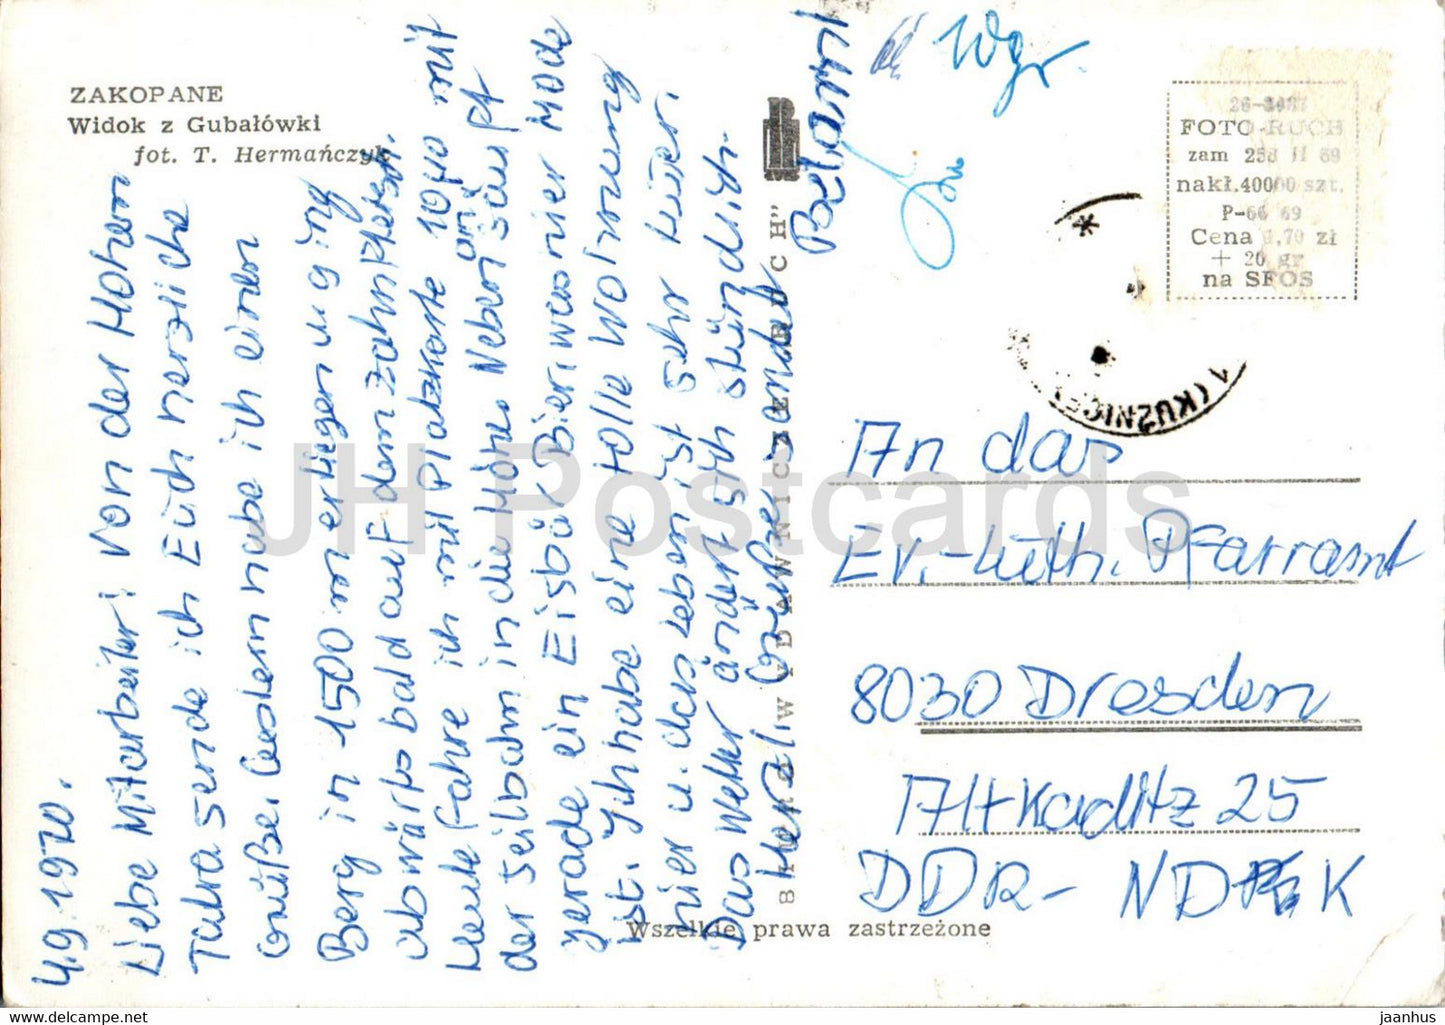 ZAKOPANE
Widok z Gubałówki
fot. T. Hermańczyk
4.9.1970.
Liebe Mitarbeiter! Von der Hohen
Tatra sende ich Euch herzliche
Grüße. Gestern habe ich einen
Berg in 1500 m erstiegen u. ging
abwärts bald auf dem Zahnfleisch.
Heute fahre ich mit Platzkarte 10 Uhr mit
der Seilbahn in die Höhe. Nebenan säuft
gerade ein Eisbär Bier, was hier Mode
ist. Ich habe eine tolle Wohnung
hier u. das Leben ist sehr
Das Wetter ändert sich stündlich.
Grüße sendet
BIURO WYDAWNICZE "RUCH"
Wszelkie prawa zastrzeżone
26-3487
FOTO-RUCH
zam 258 II 69
nakł. 40000 szt.
P-66 69
Cena 1,70 zł
+ 20 gr
na SFOS
1 (KUŹNICE)
An das
Ev.-Luth. Pfarramt
8030 Dresden
Altkaditz 25
DDR- NDRK
JH Postcards
jaanhus - delcampe.net